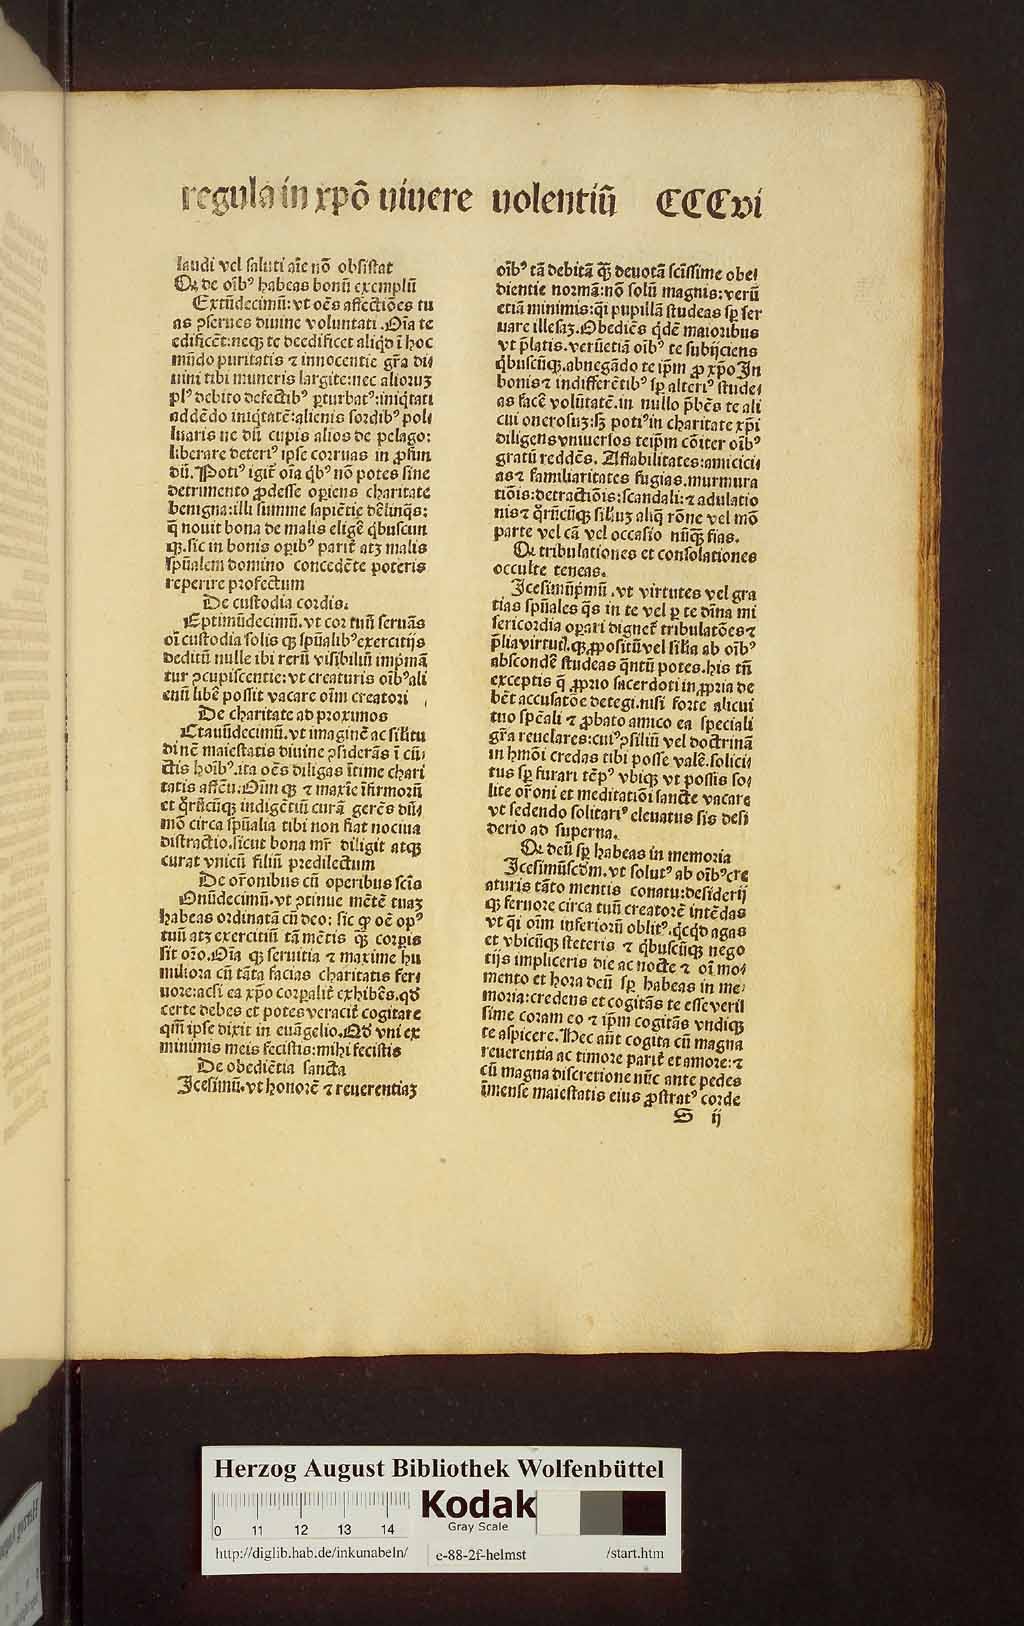 regula in xpō uiuere uolentiū CCCvi
laudi vel saluti aīe nō obsistat
Qꝛ de oībꝰ habeas bonū exemplū
Extūdecimū: vt oēs affectiōes tu
as ꝯserues diuine voluntati. Oīa te
edificēt: neqꝫ te deedificet aliqͥd ī hoc
mūdo puritatis ⁊ innocentie gr̄a di⸗
uini tibi muneris largite: nec alioruꝫ
plꝰ debito defectibꝰ ꝑturbatꝰ: iniqͥtati
addēdo iniqͥtatē: alienis sordibꝰ pol⸗
luaris ne dū cupis alios de pelago:
liberare deteriꝰ ipse corruas in ꝓfun
dū. Potiꝰ igit̄ oīa qͥbꝰ nō potes sine
detrimento ꝓdesse oꝑiens charitate
benigna: illi summe sapiētie delinq̄s:
q̄ nouit bona de malis eligē qͥbuscun
qꝫ. sic in bonis oꝑibꝰ parit̄ atqꝫ malis
spūalem domino concedēte poteris
reperire profectum
De custodia cordis.
Eptimūdecimū. vt cor tuū seruās
oī custodia solis qꝫ spūalibꝰ exercitijs
deditū nulle ibi rerū visibiliū impmā
tur ꝯcupiscentie: vt creaturis oībꝰ ali
enū libē possit vacare oīm creatori
De charitate ad proximos
Ctauūdecimū. vt imaginē ac silitu
dinē maiestatis diuine ꝯsiderās ī cū⸗
ctis hoībꝰ. ita oēs diligas ītime chari
tatis affcū. Oīm qꝫ ⁊ maxīe īfirmorū
et qͦrūcūqꝫ indigētiū curā gerēs dū⸗
mō circa spūalia tibi non fiat nociua
distractio. sicut bona mr̄ diligit atqꝫ
curat vnicū filiū predilectum
De or̄onibus cū operibus scīs
Onūdecimū. vt ꝯtinue mētē tuaꝫ
habeas ordinatā cū deo: sic ꝙ oē opꝰ
tuū atqꝫ exercitiū tā mētis q̄ꝫ corꝑis
sit or̄o. Oīa qꝫ seruitia ⁊ maxime hu
miliora cū tāta facias charitatis fer⸗
uore: acsi ea xp̄o corꝑalit̄ exhibēs. qd̄
certe debes et potes veracit̄ cogitare
qm̄ ipse dixit in euāgelio. Qd̄ vni ex
minimis meis fecistis: mihi fecistis
De obediētia sancta
Icesimū. vt honorē ⁊ reuerentiaꝫ
oībꝰ tā debitā q̄ꝫ deuotā scīssime obe⸗
dientie normā: nō solū magnis: verū
etiā minimis: qͥ pupillā studeas sꝑ ser
uare illesaꝫ. Obediēs qͥdē maioribus
vt p̄latis. verūetiā oībꝰ te subijciens
qͥbuscūqꝫ. abnegādo te ip̄m ꝓ xp̄o In
bonis ⁊ indifferētibꝰ sꝑ alteriꝰ stude⸗
as facē volūtatē. in nullo p̄bēs te ali
cui onerosuꝫ: sꝫ potiꝰ in charitate xp̄i
diligens vniuersos teip̄m cōiter oībꝰ
gratū reddēs. Affabilitates: amicici⸗
as ⁊ familiaritates fugias. murmura
tiōis: detractiōis: scandali: ⁊ adulatio
nis ⁊ qͦrūcūqꝫ siliuꝫ aliq̄ rōne vel mō
parte vel cā vel occasio nūq̄ꝫ fias.
Qꝛ tribulationes et consolationes
occulte teneas.
Icesimūpmū. vt virtutes vel gra
tias spūales q̄s in te vel ꝑ te dīna mi
sericordia oꝑari dignet̄ tribulatōes ⁊
p̄lia virtutꝭ. qꝫ ꝓpositū vel silia ab oībꝰ
abscondē studeas q̄ntū potes. his tn̄
exceptis q̄ ꝓprio sacerdoti in ꝓpria de
bēt accusatōe detegi. nisi forte alicui
tuo spēali ⁊ ꝓbato amico ea speciali
gr̄a reuelares: cuiꝰ ꝯsiliū vel doctrinā
in hmōi credas tibi posse valē. solici⸗
tus sꝑ furari tēpꝰ vbiqꝫ vt possis so⸗
lite or̄oni et meditatiōi sancte vacare
vt sedendo solitariꝰ eleuatus sis desi
derio ad superna.
Qꝛ deū sꝑ habeas in memoria
Icesimūscd̄m. vt solutꝰ ab oībꝰ cre
aturis tāto mentis conatu: desiderij
qꝫ feruore circa tuū creatorē intēdas
vt q̄i oīm inferiorū oblitꝰ. qͥcqͥd agas
et vbicūqꝫ steteris ⁊ qͥbuscūqꝫ nego
tijs impliceris die ac nocte ⁊ oī mo⸗
mento et hora deū sꝑ habeas in me⸗
moria: credens et cogitās te esse veris
sime coram eo ⁊ ip̄m cogitās vndiqꝫ
te aspicere. Hec aūt cogita cū magna
reuerentia ac timore parit̄ et amore: ⁊
cū magna discretione nūc ante pedes
īmense maiestatis eius ꝓstratꝰ corde
S ij
Herzog August Bibliothek Wolfenbüttel
Kodak
Gray Scale
0 11 12 13 14
http://diglib.hab.de/inkunabeln/ e-88-2f-helmst /start.htm